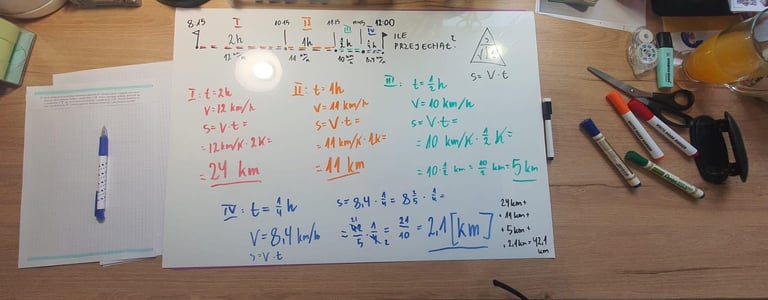 8:15 I 10:15 II 11:15 III IV 12:00
2h 1h ½h ¼h
12 km/h 11 km/h 10 km/h 8,4 km/h
ILE
PRZEJECHAŁ?
V t
s = V · t
I : t = 2h
V = 12 km/h
s = V · t =
= 12 km/h · 2h =
= 24 km
II : t = 1h
V = 11 km/h
s = V · t =
= 11 km/h · 1h =
= 11 km
III : t = ½ h
V = 10 km/h
s = V · t =
= 10 km/h · ½ h =
= 10 · ½ km = 10/2 km = 5 km
IV : t = ¼ h
V = 8,4 km/h
s = V · t
s = 8,4 · ¼ = 8 2/5 · ¼ =
= 42/5 · 1/4 = 21/10 = 2,1 [km]
21 2
24 km +
+ 11 km +
+ 5 km +
+ 2,1 km = 42,1
km